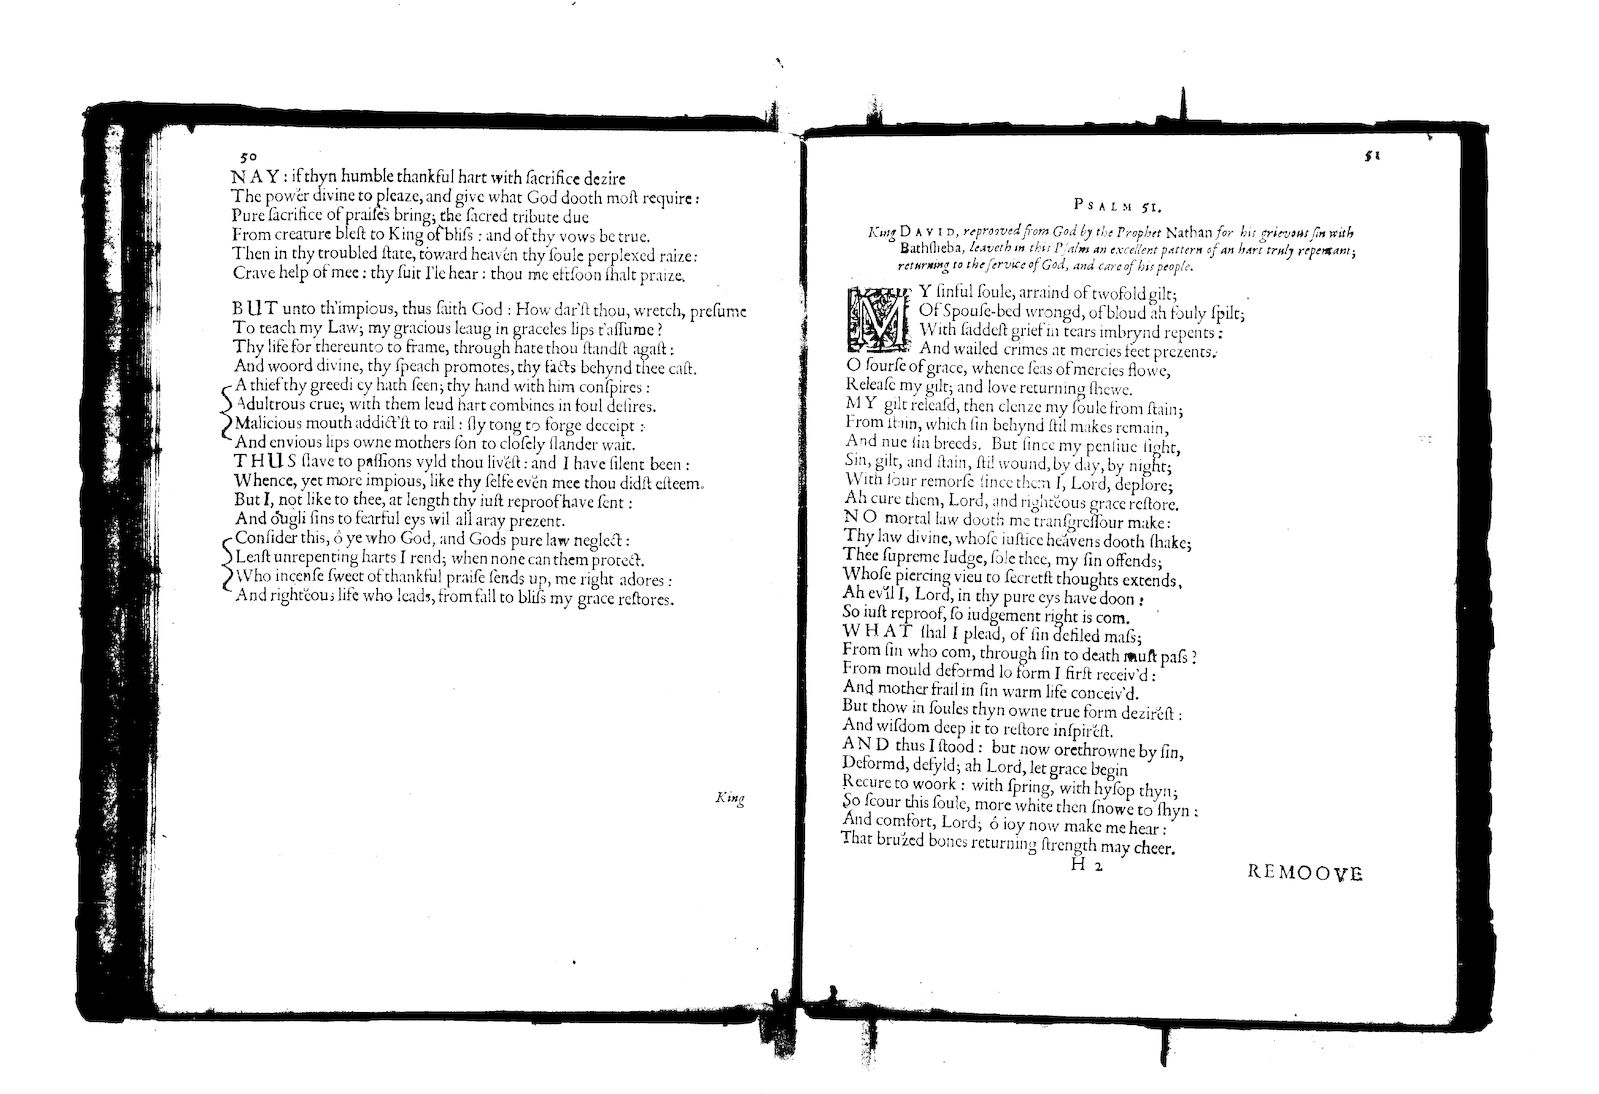 50
NAY: if thyn humble thankful hart with ſacrifice dezire
The powér divine to pleaze, and give what God dooth moſt require:
Pure ſacrifice of praiſes bring; the ſacred tribute due
From creature bleſt to King of bliſs: and of thy vows be true.
Then in thy troubled ſtate, toward heavén thy ſoule perplexed raize:
Crave help of mee: thy ſuit I'le hear: thou me eftſoon ſhalt praize.
BUT unto th'impious, thus ſaith God: How dar'ſt thou, wretch, preſume
To teach my Law; my gracious leaug in graceles lips t'aſſume?
Thy life for thereunto to frame, through hate thou ſtandſt agaſt:
And woord divine, thy ſpeach promotes, thy facts behynd thee caſt.
A thief thy greedi ey hath ſeen; thy hand with him conſpires:
Adultrous crue; with them leud hart combines in foul deſires.
Malicious mouth addict'ſt to rail: ſly tong to forge deceipt:
And envious lips owne mothers ſon to cloſely ſlander wait.
THUS ſlave to paſſions vyld thou livéſt: and I have ſilent been:
Whence, yet more impious, like thy ſelfe evén mee thou didſt eſteem.
But I, not like to thee, at length thy iuſt reproof have ſent:
And óugli ſins to fearful eys wil all aray prezent.
Conſider this, ô ye who God, and Gods pure law neglect:
Leaſt unrepenting harts I rend; when none can them protect.
Who incenſe ſweet of thankful praiſe ſends up, me right adores:
And rightéous life who leads, from fall to bliſs my grace reſtores.
King
51
PSALM 51.
King DAVID, reprooved from God by the Prophet Nathan for his grievous ſin with
Bathſheba, leaveth in this Pſalm an excellent pattern of an hart truly repentant;
returning to the ſervice of God, and care of his people.
MY ſinful ſoule, arraind of twofold gilt;
Of Spouſe-bed wrongd, of bloud ah fouly ſpilt;
With ſaddeſt grief in tears imbrynd repents:
And wailed crimes at mercies feet prezents.
O ſourſe of grace, whence ſeas of mercies flowe,
Releaſe my gilt; and love returning ſhewe.
MY gilt releaſd, then clenze my ſoule from ſtain;
From ſtain, which ſin behynd ſtil makes remain,
And nue ſin breeds. But ſince my penſiue ſight,
Sin, gilt, and ſtain, ſtil wound, by day, by night;
With ſour remorſe ſince them I, Lord, deplore;
Ah cure them, Lord, and rightéous grace reſtore.
NO mortal law dooth me tranſgreſſour make:
Thy law divine, whoſe iuſtice heávens dooth ſhake;
Thee ſupreme Iudge, ſole thee, my ſin offends;
Whoſe piercing vieu to ſecretſt thoughts extends,
Ah evíl I, Lord, in thy pure eys have doon:
So iuſt reproof, ſo iudgement right is com.
WHAT ſhal I plead, of ſin defiled maſs;
From ſin who com, through ſin to death muſt paſs?
From mould deformd lo form I firſt receiv'd:
And mother frail in ſin warm life conceiv'd.
But thow in ſoules thyn owne true form deziréſt:
And wiſdom deep it to reſtore inſpiréſt.
AND thus I ſtood: but now orethrowne by ſin,
Deformd, defyld; ah Lord, let grace begin
Recure to woork: with ſpring, with hyſop thyn;
So ſcour this ſoule, more white then ſnowe to ſhyn:
And comfort, Lord; ô ioy now make me hear:
That bruzéd bones returning ſtrength may cheer.
H 2
REMOOVE